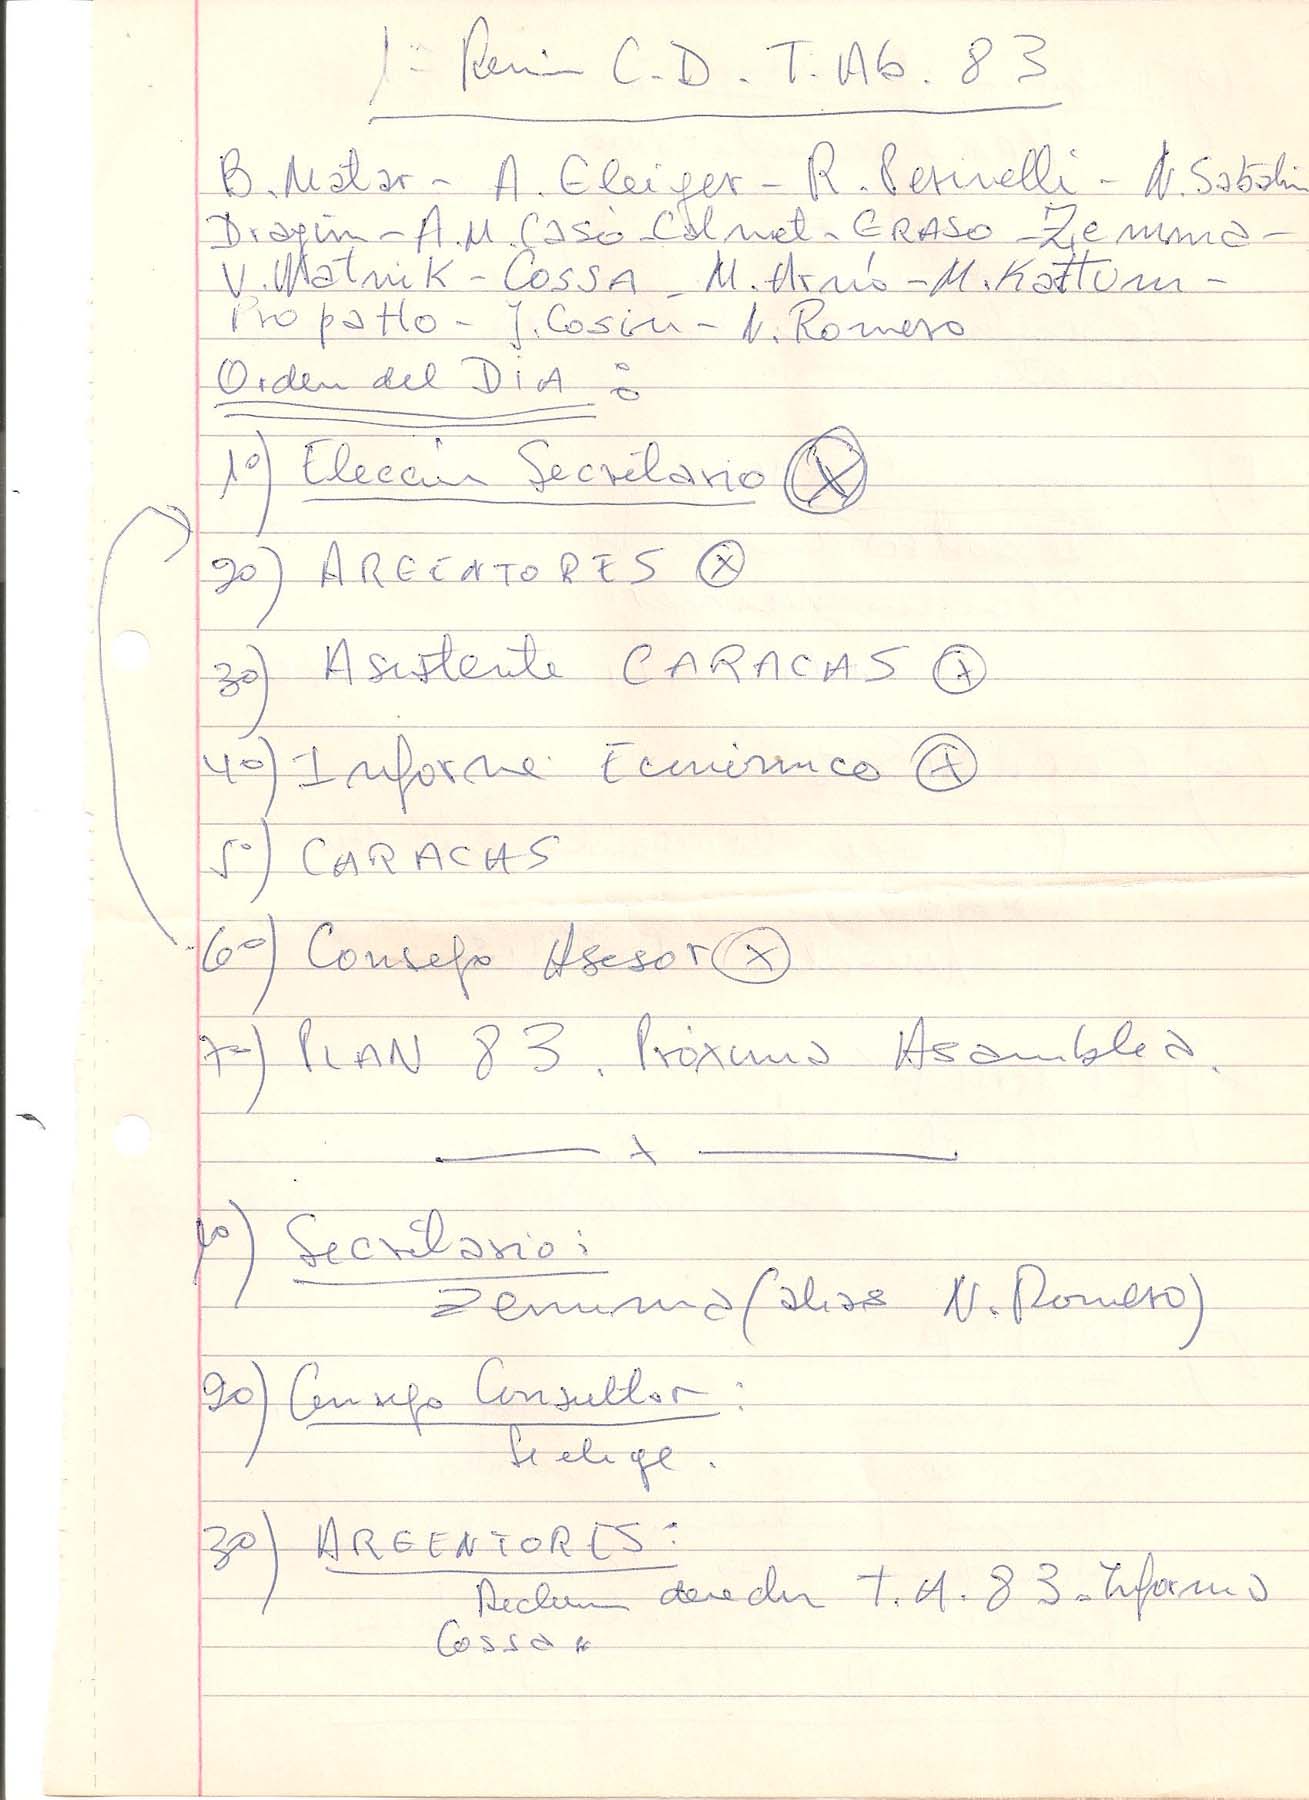 1- Reunión C.D. T. Ab. 83
B. Matar - A. Eleiger - R. Perinelli - N. Sabatin
Dragún - A.M. Casó - Calmet - ERASO - Zemma -
V. Watnik - COSSA - M. Arnó - M. Kattum -
Propatto - J. Cosin - N. Romero
Orden del DIA :
1º) Elección Secretario X
2º) ARGENTORES X
3º) Asistente CARACAS X
4º) Informe Económico X
5º) CARACAS
6º) Consejo Asesor X
7º) PLAN 83. Próxima Asamblea.
x
1º) Secretario:
Zemma (alias N. Romero)
2º) Consejo Consultor :
Se elige.
3º) ARGENTORES:
T.A. 83 - Informa
Cossa